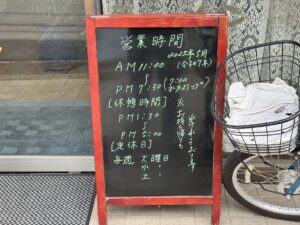 営業時間
2025年5月
(令和7年)
AM11:00
〜
PM7:30(7:00
ラストオーダー)
[休憩時間]
PM1:30
〜
PM5:00
[定休日]
毎週 火曜日
水〃
土